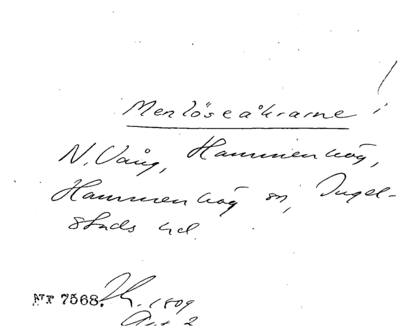 Menlöseåkrarne i
N. Vång, Hammenhög,
Hammenhög sn, Ingel-
stads hd.
NT 7568. 1809
Akt 2